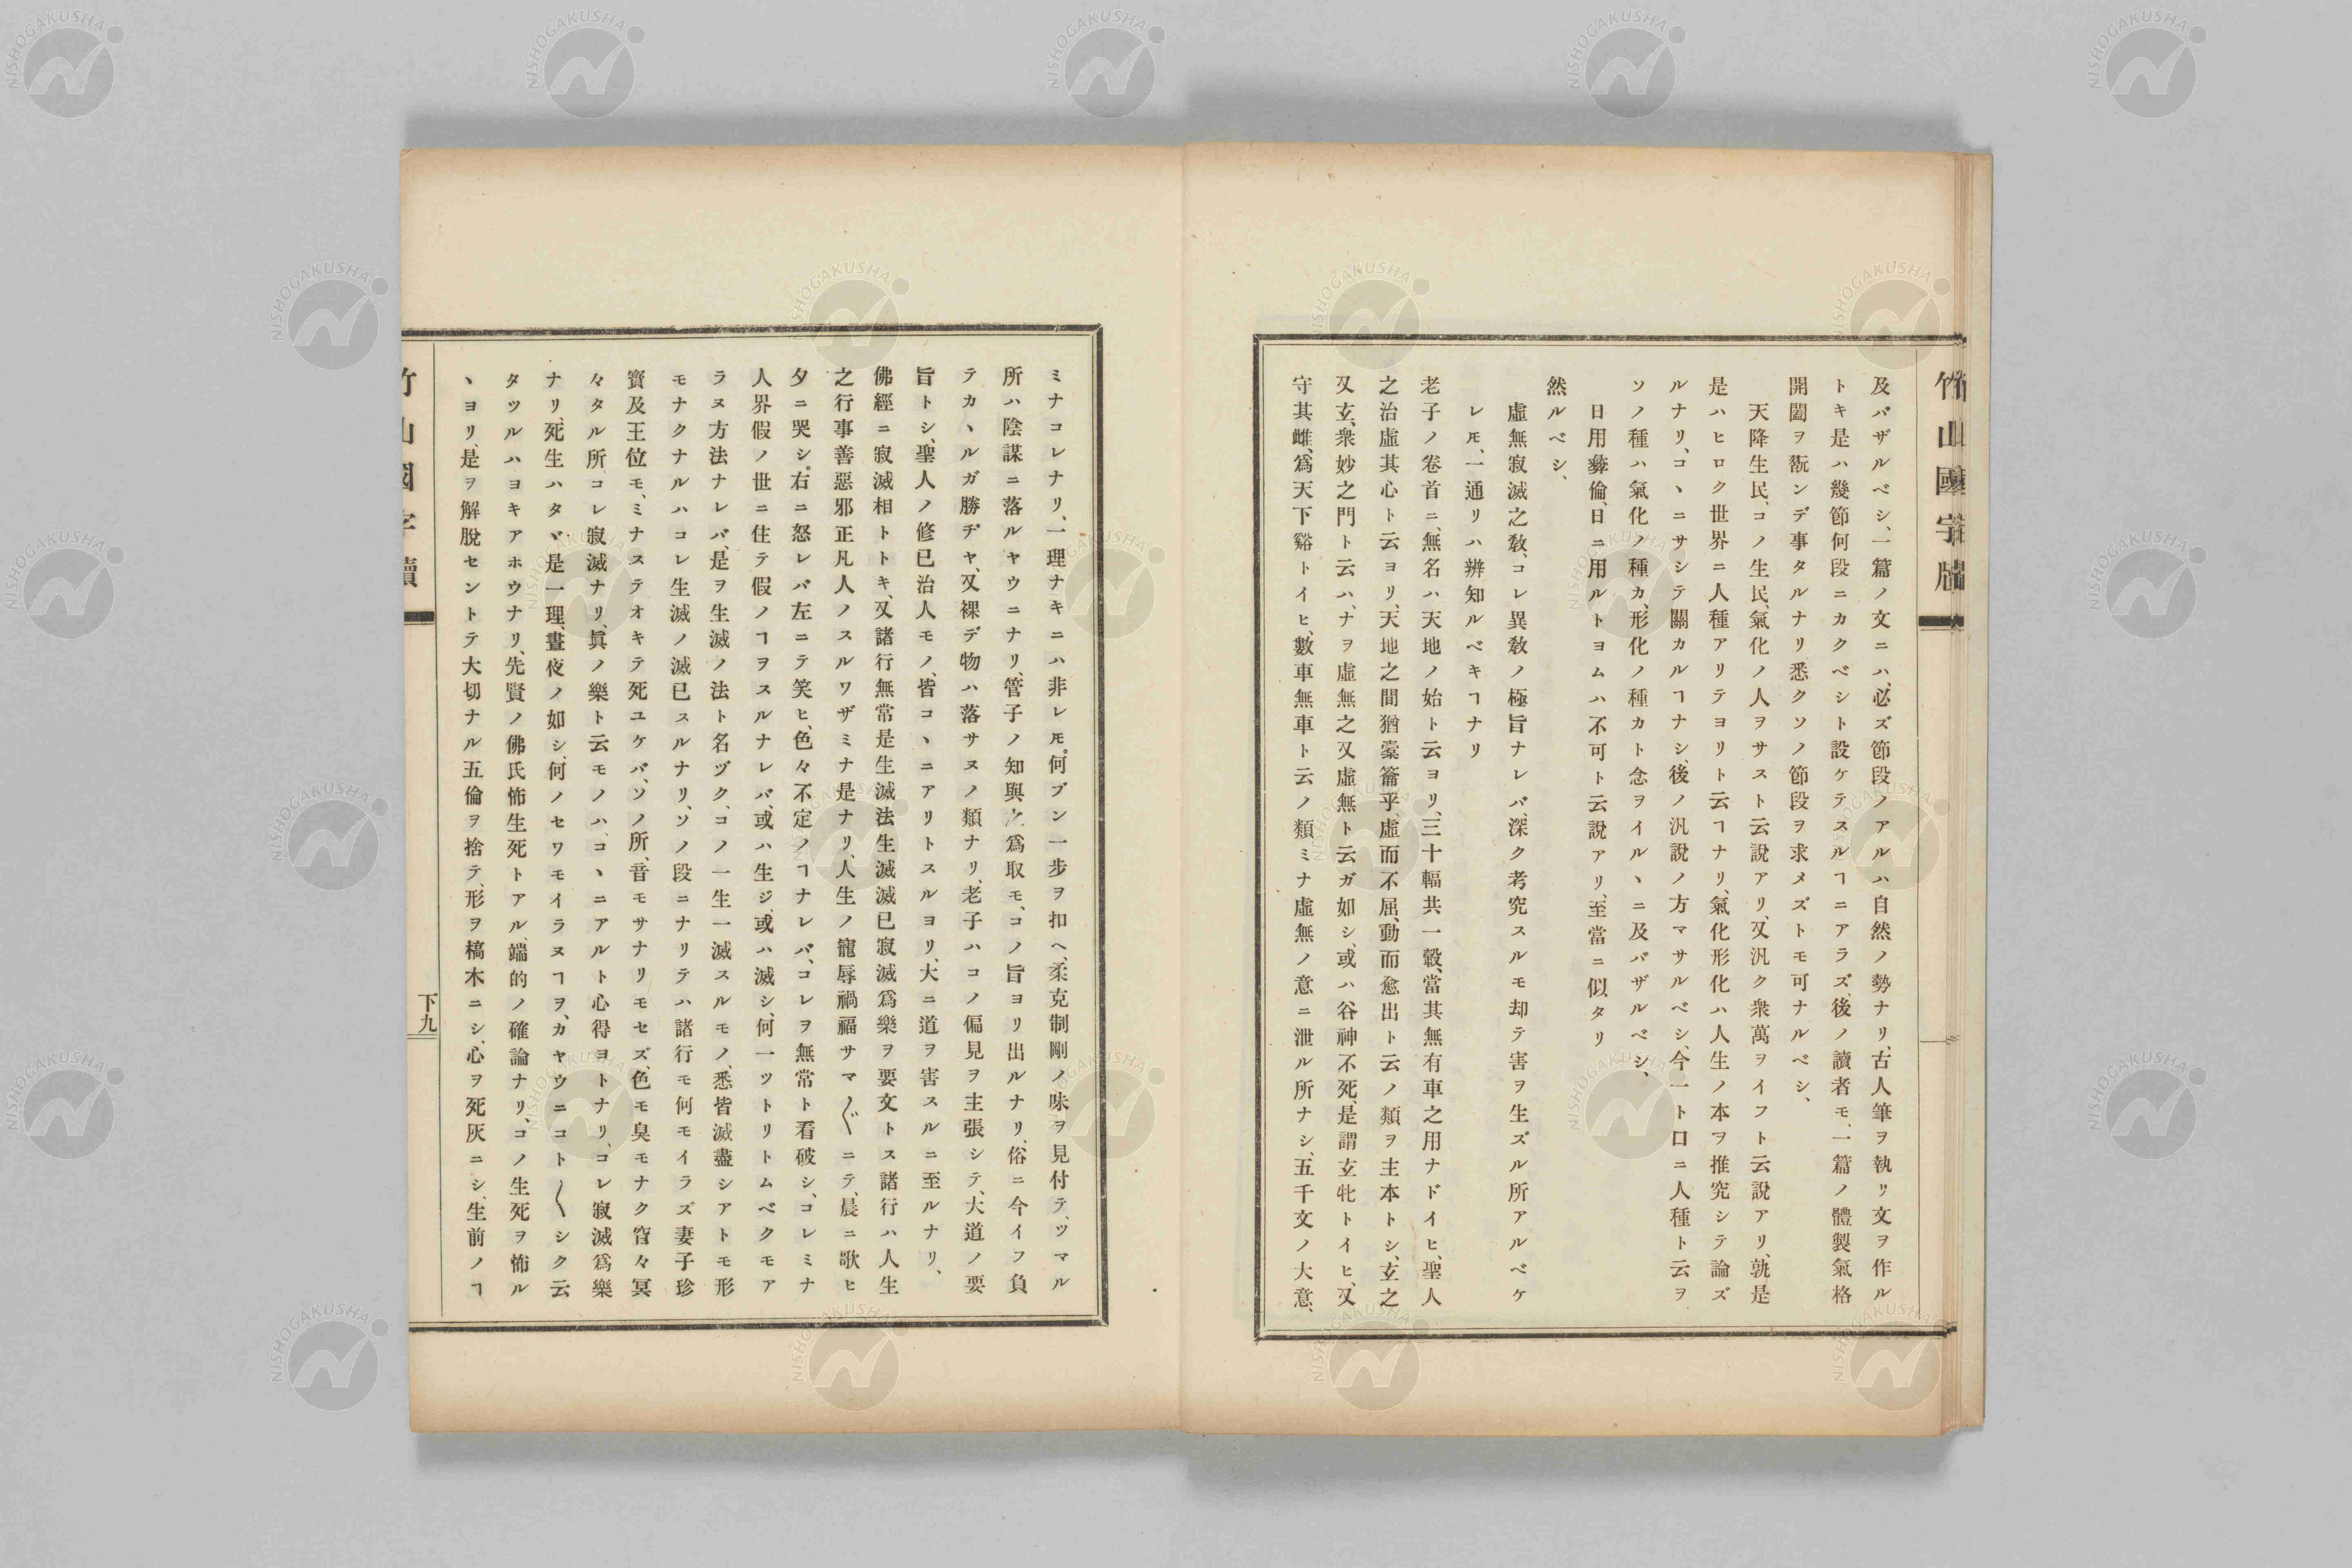 竹山國字牘
及バザルベシ、一篇ノ文ニハ、必ズ節段ノアルハ自然ノ勢ナリ、古人筆ヲ執リ文ヲ作ル
トキ是ハ幾節何段ニカクベシト設ケテスルヿニアラズ、後ノ讀者モ、一篇ノ體製氣格
開闔ヲ翫ンデ事タルナリ悉クソノ節段ヲ求メズトモ可ナルベシ、
天降生民、コノ生民、氣化ノ人ヲサスト云説アリ、又汎ク衆萬ヲイフト云説アリ、孰是
是ハヒロク世界ニ人種アリテヨリト云ヿナリ、氣化形化ハ人生ノ本ヲ推究シテ論ズ
ルナリ、コヽニサシテ關カルヿナシ、後ノ汎説ノ方マサルベシ、今一ト口ニ人種ト云ヲ
ソノ種ハ氣化ノ種カ、形化ノ種カト念ヲイルヽニ及バザルベシ、
日用彝倫、日ニ用ルトヨムハ不可ト云説アリ、至當ニ似タリ
然ルベシ、
虛無寂滅之敎、コレ異敎ノ極旨ナレバ、深ク考究スルモ却テ害ヲ生ズル所アルベケ
レ𪜈、一通リハ辨知ルベキヿナリ
老子ノ卷首ニ、無名ハ天地ノ始ト云ヨリ、三十輻共一轂、當其無有車之用ナドイヒ、聖人
之治虛其心ト云ヨリ、天地之間猶槖籥乎、虛而不屈、動而愈出ト云ノ類ヲ主本トシ、玄之
又玄、衆妙之門ト云ハ、ナヲ虛無之又虛無ト云ガ如シ、或ハ谷神不死、是謂玄牝トイヒ、又
守其雌、爲天下谿トイヒ、數車無車ト云ノ類ミナ虛無ノ意ニ泄ル所ナシ、五千文ノ大意、
ミナコレナリ、一理ナキニハ非レ𪜈。何ブン一步ヲ扣ヘ、柔克制剛ノ味ヲ見付テ、ツマル
所ハ陰謀ニ落ルヤウニナリ、管子ノ知與之爲取モ、コノ旨ヨリ出ルナリ、俗ニ今イフ負
テカヽルガ勝ヂヤ、又裸デ物ハ落サヌノ類ナリ、老子ハコノ偏見ヲ主張シテ、大道ノ要
旨トシ、聖人ノ修已治人モノ、皆コヽニアリトスルヨリ、大ニ道ヲ害スルニ至ルナリ、
佛經ニ寂滅相トトキ、又諸行無常是生滅法生滅滅已寂滅爲樂ヲ要文トス諸行ハ人生
之行事善惡邪正凡人ノスルワザミナ是ナリ、人生ノ寵辱禍福サマ〲ニテ、晨ニ歌ヒ
夕ニ哭シ。右ニ怒レバ左ニテ笑ヒ、色々不定ノヿナレバ、コレヲ無常ト看破シ、コレミナ
人界假ノ世ニ住テ假ノヿヲスルナレバ、或ハ生ジ、或ハ滅シ、何一ツトリトムベクモア
ラヌ方法ナレバ是ヲ生滅ノ法ト名ヅク、コノ一生一滅スルモノ、悉皆滅盡シアトモ形
モナクナルハコレ生滅ノ滅已スルナリ、ソノ段ニナリテハ諸行モ何モイラズ妻子珍
寶及王位モ、ミナステオキテ死ユケバ、ソノ所、音モサナリモセズ、色モ臭モナク窅々冥
々タル所、コレ寂滅ナリ、眞ノ樂ト云モノハ、コヽニアルト心得ヨトナリ、コレ寂滅爲樂
ナリ、死生ハタヾ是一理、晝夜ノ如シ、何ノセワモイラヌヿヲ、カヤウニコト〱シク云
タツルハヨキアホウナリ、先賢ノ佛氏怖生死トアル、端的ノ確論ナリ、コノ生死ヲ怖ル
ヽヨリ、是ヲ解脫セントテ大切ナル五倫ヲ捨テ、形ヲ槁木ニシ、心ヲ死灰ニシ、生前ノヿ
竹山國字牘
下九
NISHOGAKUSHA